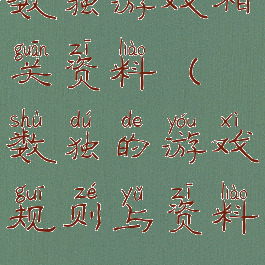 数独游戏相
guān zī liào
关资料（
shù dú de yóu xì
数独的游戏
guī zé yǔ zī liào
规则与资料